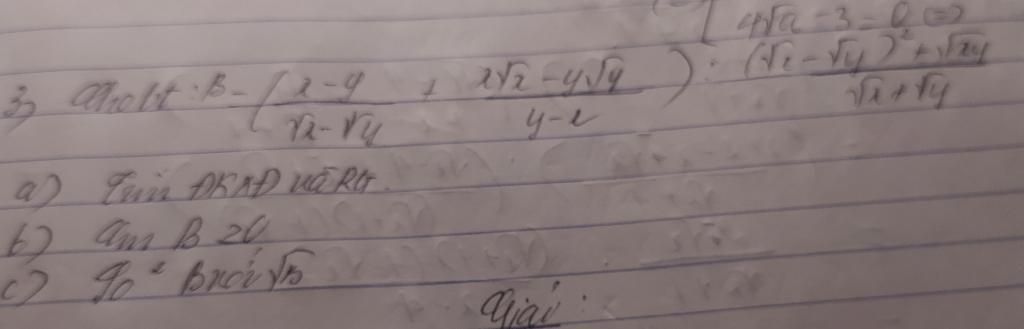 4√a - 3 = 0 <=>
3) Cho bt: B = ( (x-y)/(√x-√y) + (x√x-y√y)/(y-x) ) : ((√x-√y)²+√xy)/(√x+√y)
a) Tìm ĐKXĐ và RG.
b) Cm B ≥ 0
c) So² B với √B
Giải: